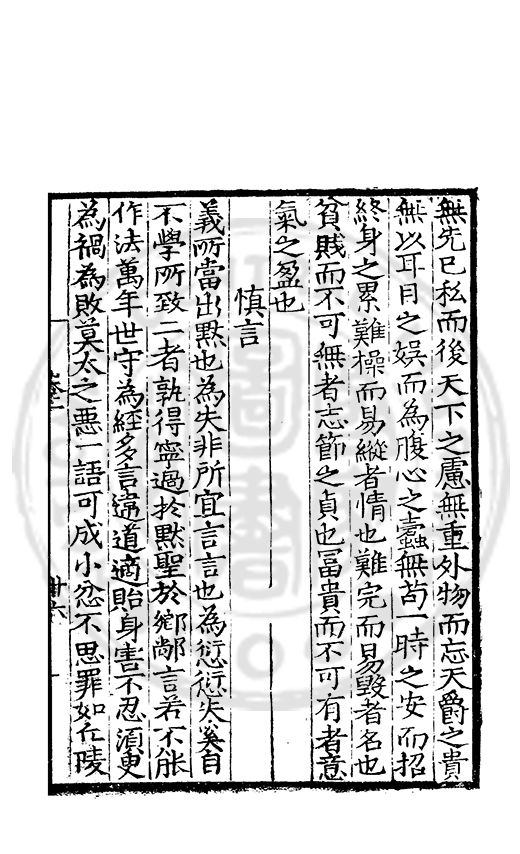 無先已私而後天下之慮無重外物而忘天爵之貴
無以耳目之娛而為腹心之蠹無苟一時之安而招
終身之累難操而易縱者情也難完而易毀者名也
貧賤而不可無者志節之貞也冨貴而不可有者意
氣之盈也
慎言
義所當出黙也為失非所宜言言也為愆愆失奚自
不學所致二者孰得寧過於黙聖於鄉鄙言若不能
作法萬年世守為經多言違道適貽身害不忍須臾
為禍為敗莫大之惡一語可成小忿不思罪如丘陵
廿六